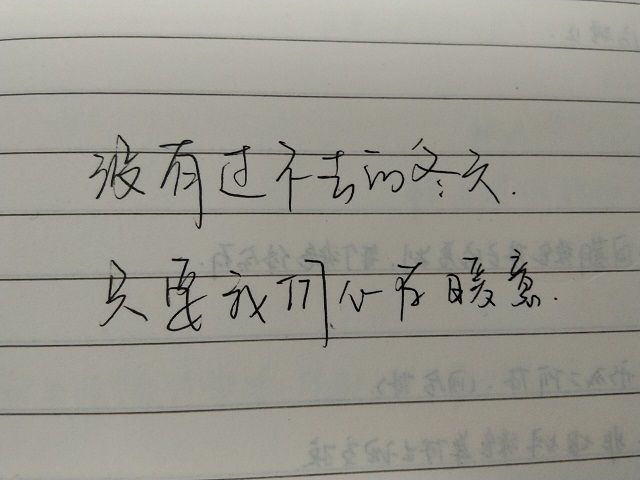 没有过不去的冬天.
只要我们心存暖意.